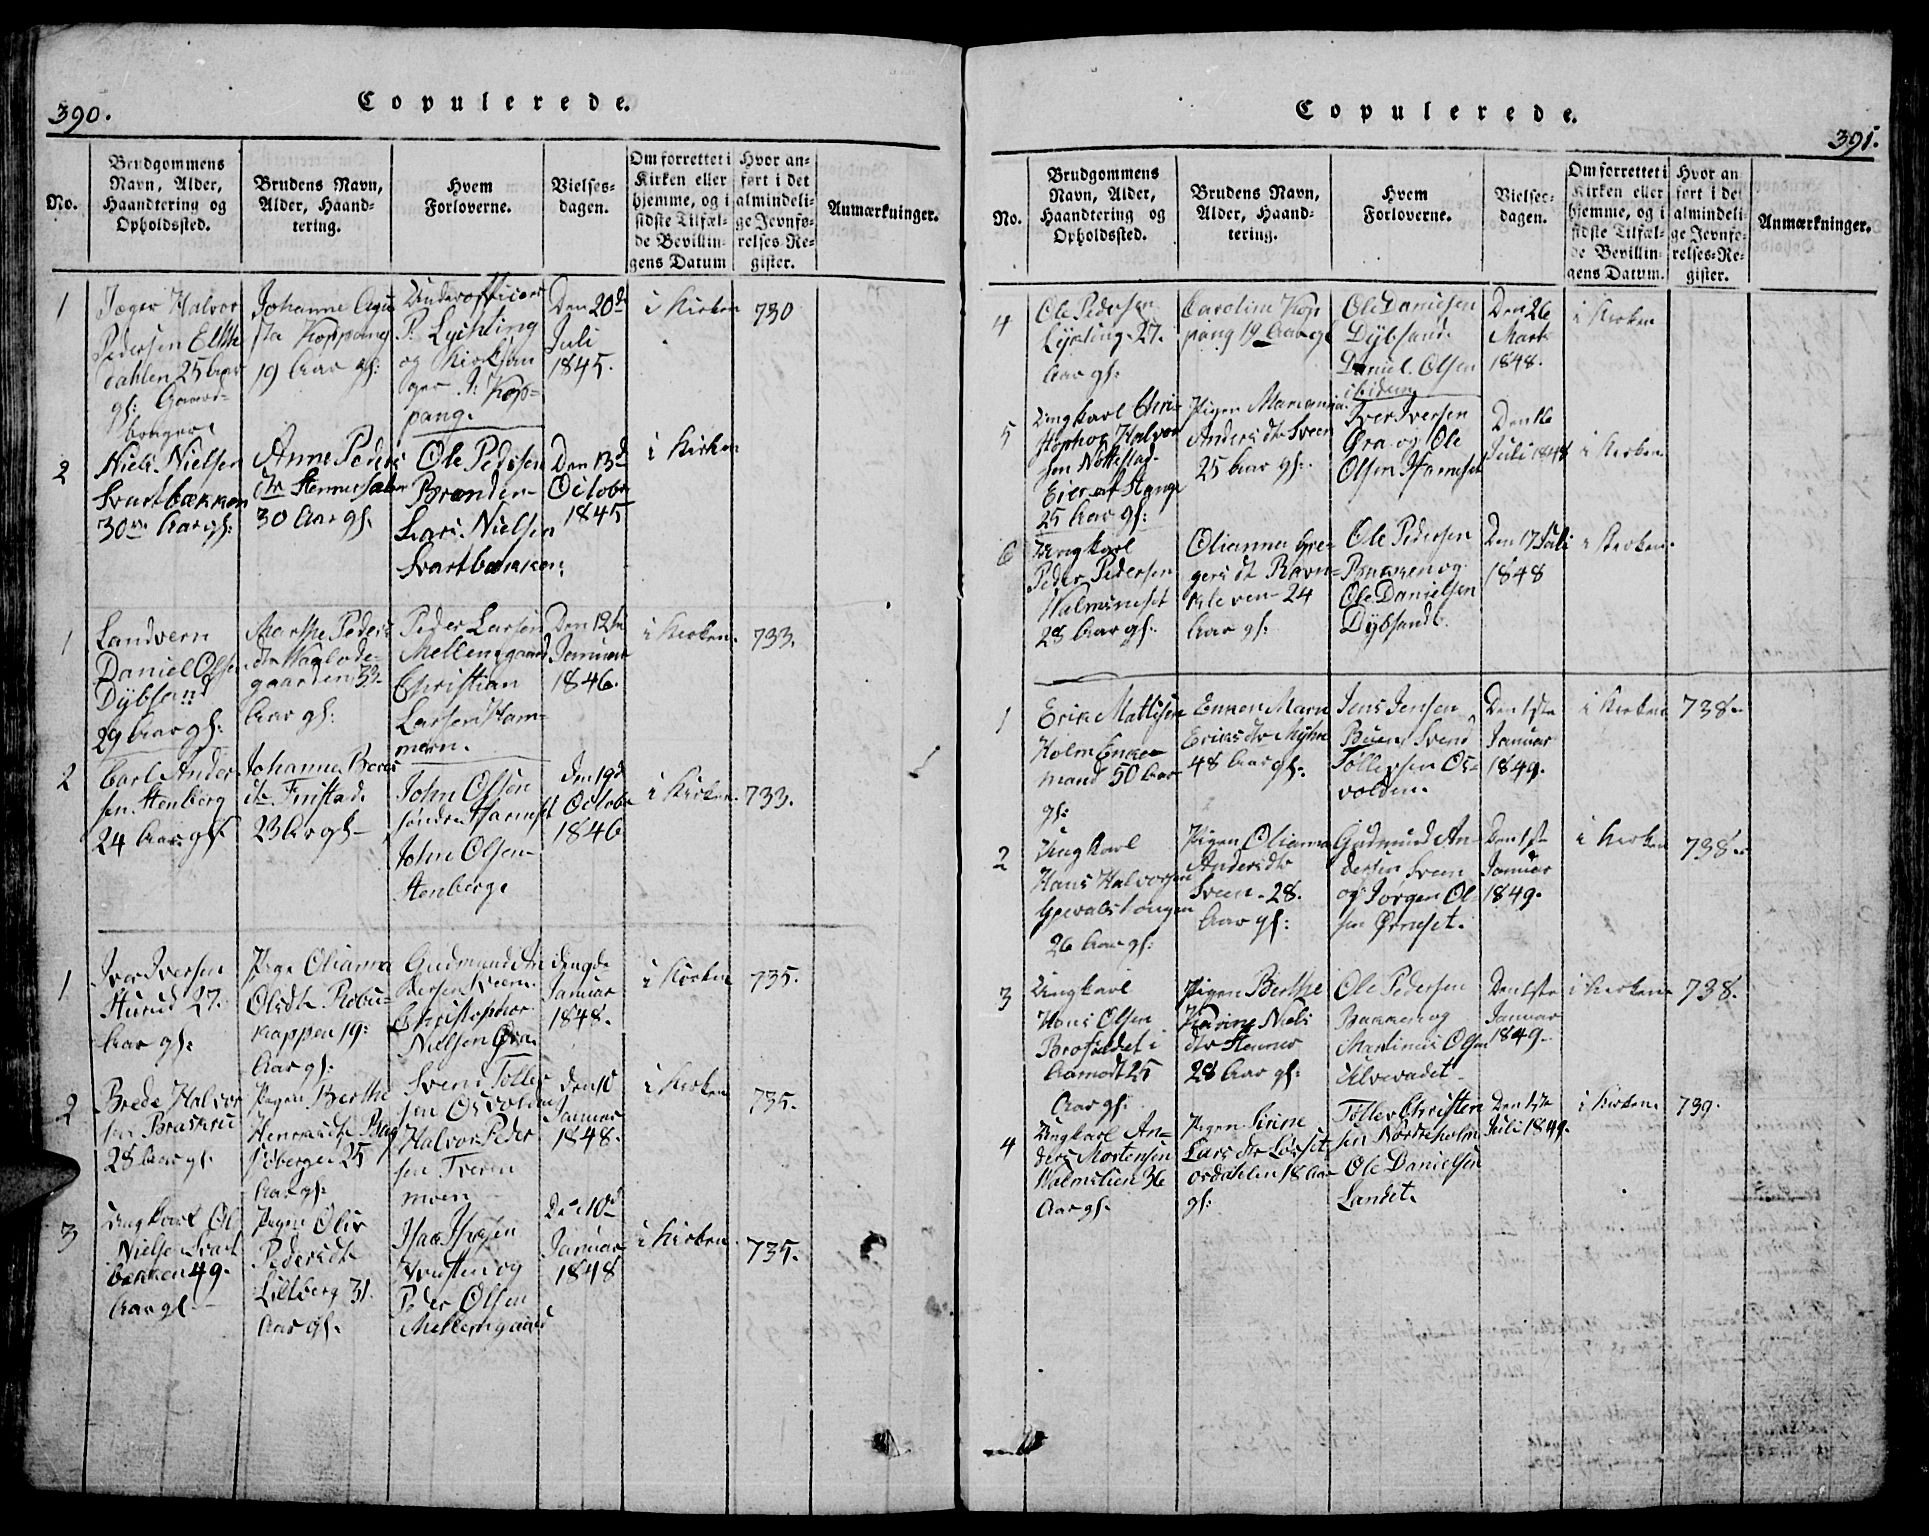 390.
Copulerede.
No.
Brudgommens
Navn, Alder,
Haandtering og
Opholdssted.
Brudens Navn,
Alder, Haand-
tering.
Hvem
Forloverne.
Vielses-
dagen.
Om forrettet i
Kirken eller
hjemme, og i
sidste Tilfæl-
de Bevillin-
gens Datum
Hvor an-
ført i det
almindeli-
ge Jevnfø-
relses-Re-
gister.
Anmærkninger.
1
Jæger Halvor
Pedersen
dahlen 25 Aar
gl: Gaard-
bruger
Johanne
Koppang
19 Aar gl:
Underofficer
P. Lychling
og
Kop-
pang.
Den 20d
Juli
1845.
i Kirken
730
2
Niels Nielsen
Svartbækken
30 Aar gl:
Anne Peders
dtr Stenersæter
30 Aar gl.
Ole Pedersen
Brænden
Lars Nielsen
Svartbækken.
Den 13d
October
1845
i Kirken
1
Landvern
Daniel Olsen
Dybsand
29 Aar gl:
Marthe Peders
dtr
gaarden 32
Aar gl:
Peder Larsen
Mellemgaard
Christian
Larsen Ham-
meren.
Den 12te
Januar
1846.
i Kirken.
733.
2
Carl Ander-
sen Stenberg
24 Aar gl:
Johanna
dtr Finstad.
23 Ar gl-
John Olsen
søndre Harnset
John Olsen
Stenberg.
den 19d
October
1846
i Kirken.
733.
1
Iver Iversen
Sturud 27.
Aar gl:
Pige Olianna
Olsdtr
kappen 19:
Aar gl:
Gudmund An
dersen Sveen.
Christopher
Nielsen Øra.
Januar
1848.
i Kirken
735.
2
Brede Halvor
sen
28 Aar gl.
Pigen Berthe
Henriksdtr
25
Aar gl:
Svend Toller
sen Osvolden
Halvor Peder
sen
moen
den 10
Januar
1848.
i Kirken
735.
3
Ungkarl Ol
Nielsen Svart
bækken 49.
Aar gl-
Pigen Oliv
Pedersdtr
Lilleberg 31.
Aar gl.
og
Peder Olsen
Mellemgaard
Den 10d
Januar
1848
i Kirken.
735.
Copulerede.
391.
No.
Brudgommens
Navn, Alder,
Haandtering og
Opholdssted.
Brudens Navn,
Alder, Haand-
tering.
Hvem
Forloverne.
Vielses-
dagen.
Om forrettet i
Kirken eller
hjemme, og i
sidste Tilfæl-
de Bevillin-
gens Datum.
Hvor an
ført i det
almindeli-
ge Jevnfø-
relses-Re-
gister.
Anmærkninger.
4
Ole Pedersen
Lykling. 27.
Aar gl:
Caroline Kop
pang 19 Aar gl
Ole Danielsen
Dybsand.
Daniel Olsen
ibidem
Den 26
Marts
1848.
i Kirken
5
Ungkarl Chri-
stopher Halvor
sen Nøttestad.
Eier af Stange
25 Aar gl:
Pigen Marianna
Andersdtr Sveen
25 Aar gl:
Iver Iversen
Øra og Ole
Olsen Harnset
Den 16
Juli 1848
i Kirken
6
Ungkarl
Peder Pedersen
Valmsneset
28 Aar gl.
Olianna Gre-
gersdt Ravn-
kleven 24
Aar gl:
Ole Pedersen
Bakken og
Ole Danielsen
Dybsandt.
Den 17 Juli
1848
i Kirken.
1
Erik Mattisen
Holm Enke-
mand 50 Aar
gl:
Enken Maren
Eriksdtr Myhre
48 Aar gl:
Jens Jensen
Buen Svend
Tollefsen Os-
volden.
Den 1ste
Januar
1849.
i Kirken
738.
2
Ungkarl
Hans Halvorsen
26 Aar gl:
Pigen Olianna
Andersdtr
Sveen. 28.
Aar gl:
Gudmund An-
dersen Sveen
og Jørgen Ol-
sen Ørneset.
Den 1ste
Januar
1849.
i Kirken
738.
3
Ungkarl
Hans Olsen
Brofædet i
Aamodt 25
Aar gl.
Pigen Berthe
Karine Niels
dtr Stenner
28 Aar gl:
Ole Pedersen
Bakken og
Martinus Olsen
Ulvevadet
Den 1ste
Januar
1849.
i Kirken
738.
4
Ungkarl An-
ders Mortensen
Valmslien 36
Aar gl.
Pigen Sirine
Larsdtr Løsset
osdalen 18 Aar
gl:
Tollev Christen
sen Nordreholm
Ole Danielsen
Landet.
Den 1ste
Juli 1849.
i Kirken
739.